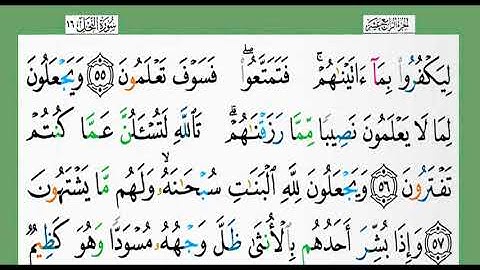 سُورَةُ النَّحْلِ ١٦
الجُزءُ الرَّابِعُ عَشَرَ
لِيَكْفُرُوا۟ بِمَآ ءَاتَيْنَٰهُمْ ۚ فَتَمَتَّعُوا۟ ۖ فَسَوْفَ تَعْلَمُونَ ٥٥ وَيَجْعَلُونَ
لِمَا لَا يَعْلَمُونَ نَصِيبًا مِّمَّا رَزَقْنَٰهُمْ ۗ تَٱللَّهِ لَتُسْـَٔلُنَّ عَمَّا كُنتُمْ
تَفْتَرُونَ ٥٦ وَيَجْعَلُونَ لِلَّهِ ٱلْبَنَٰتِ سُبْحَٰنَهُۥ ۙ وَلَهُم مَّا يَشْتَهُونَ
٥٧ وَإِذَا بُشِّرَ أَحَدُهُم بِٱلْأُنثَىٰ ظَلَّ وَجْهُهُۥ مُسْوَدًّا وَهُوَ كَظِيمٌ